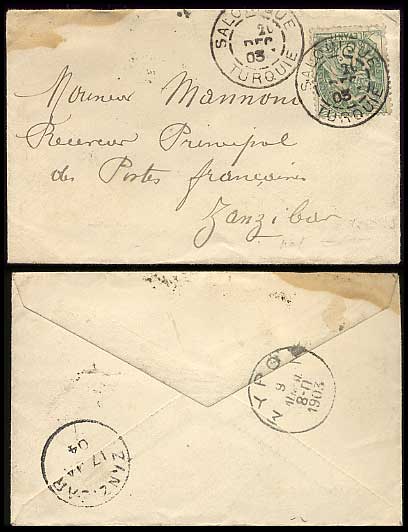 SALONIQUE
20
DEC
03
TURQUIE
SALONIQUE
20
DEC
03
TURQUIE
Monsieur Mannoni
Receveur Principal
des Postes françaises
Zanzibar
9
8-11
1903
ZANZIBAR
17 JA
04